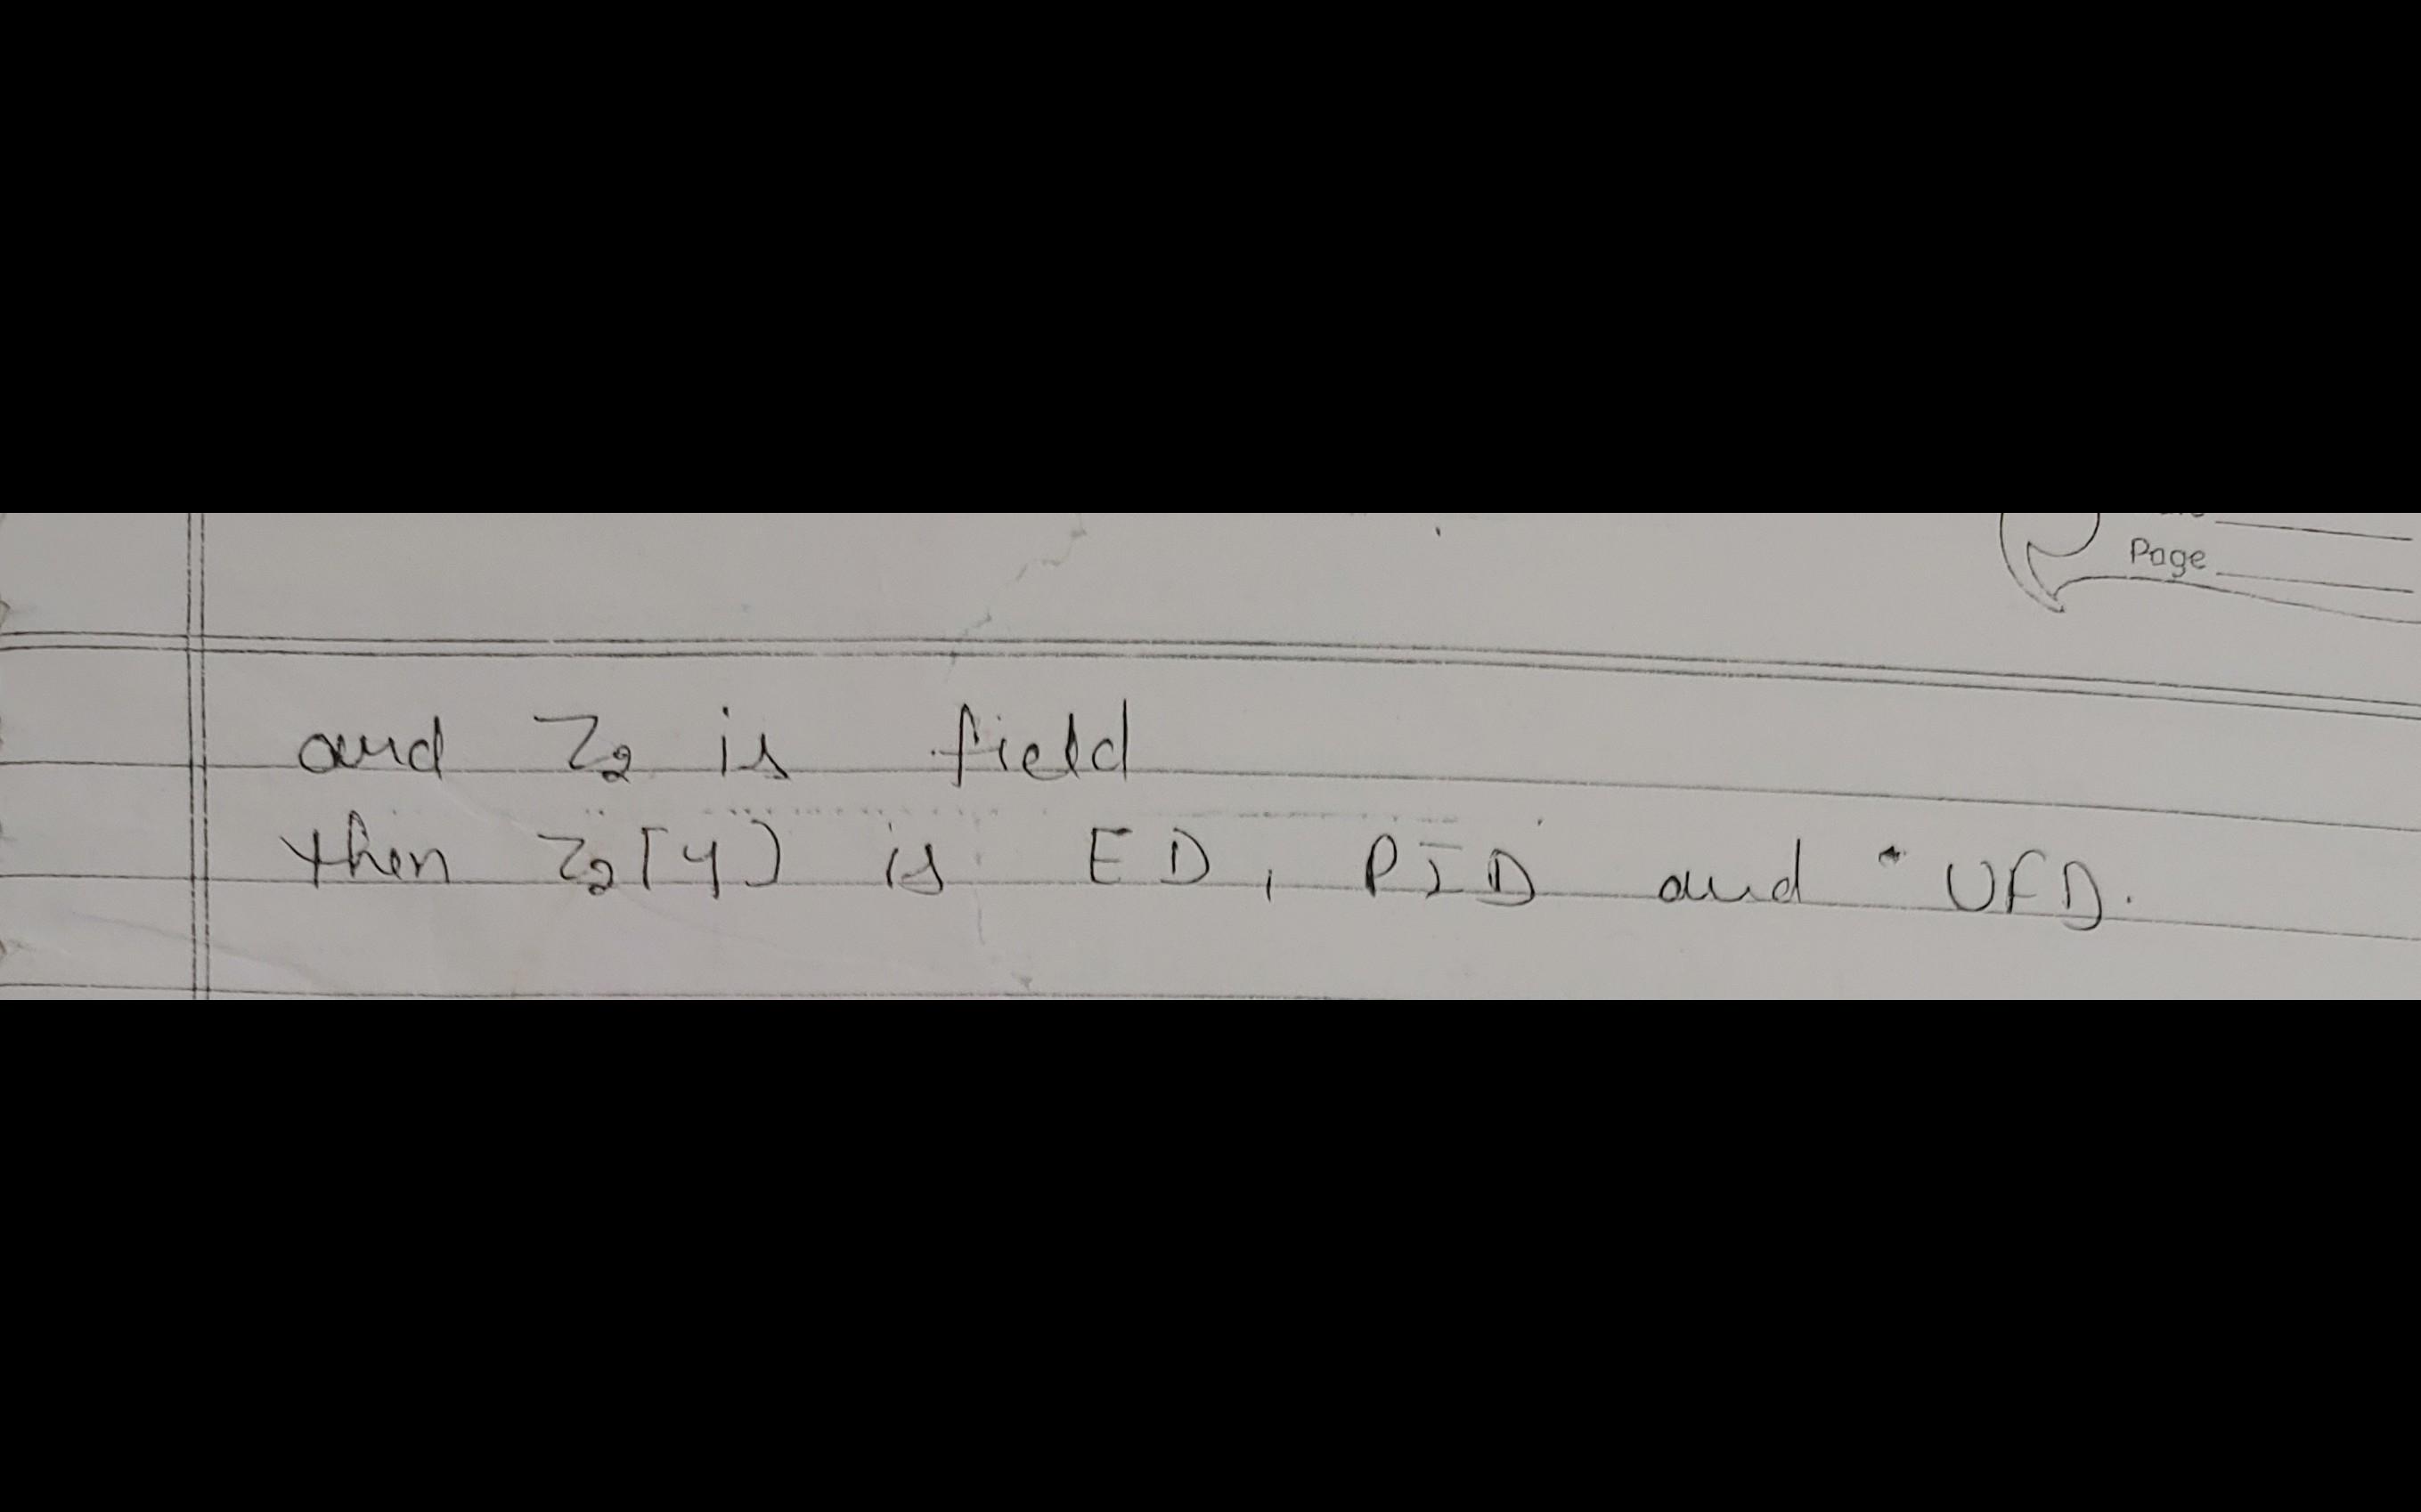 Page
and Z₂ is field
then Z₂[y] is ED, PID and UFD.